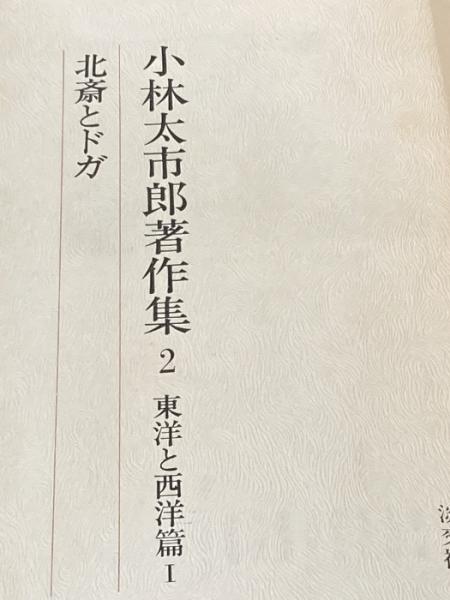 小林太市郎著作集 2 東洋と西洋篇 I
北斎とドガ
淡交社